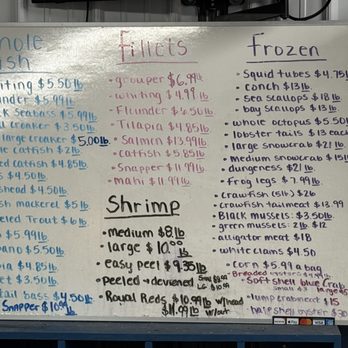 hole
ish
iting $5.50 lb
under $5.99 lb
ck Seabass $5.99 lb
all croaker $3.50 lb
large croaker $5.00 lb
e catfish $2 lb
ed catfish $4.85 lb
$4.50 lb
shead $4.50 lb
sh mackerel $5 lb
eled Trout $6 lb
$5.99 lb
pano $5.50 lb
pia $4.85 lb
et $3.50 lb
tail bass $4.50 lb
Snapper $10.99 lb
Fillets
• grouper $6.99 lb
• whiting $4.99 lb
• Flounder $6.50 lb
• Tilapia $4.85 lb
• Salmon $13.99 lb
• catfish $5.85 lb
• Snapper $11.99 lb
• mahi $11.99 lb
Shrimp
• medium $8 lb
• large $10.00 lb
• easy peel $9.35 lb
• peeled → deviened
LG $10.99
• Royal Reds $10.99 lb w/head
$11.99 lb w/out
Frozen
• Squid tubes $4.75 lb
• conch $13 lb
• Sea scallops $18 lb
• bay scallops $13 lb
• whole octopus $5.50 lb
• lobster tails $13 each
• large snowcrab $21 lb
• medium snowcrab $15 lb
• dungeness $21 lb
• Frog legs $7.99 lb
• Crawfish (5lb) $26
• Crawfish tailmeat $13.99
• Black mussels: $3.50 lb
• green mussels: $12
• aligator meat $18
• white clams $4.50
• Corn $5.99 a bag
• Soft shell blue crab
• lump crabmeat $15
• half shell oyster $30